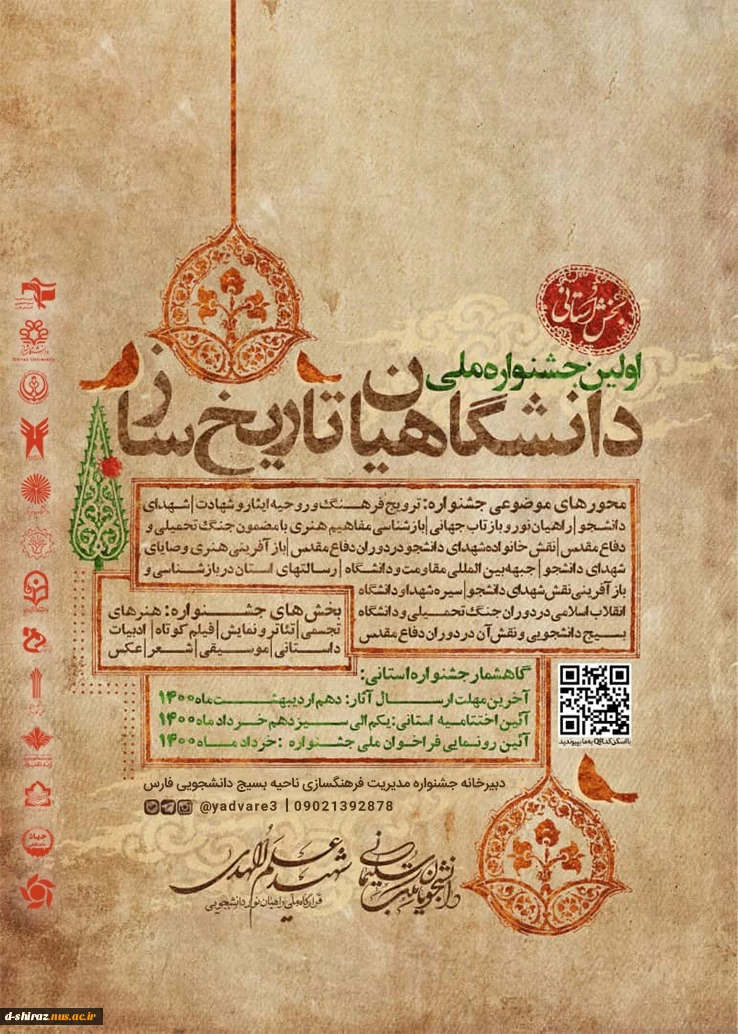 بخش استانی
اولین جشنواره ملی
دانشگاهیان تاریخ ساز
محورهای موضوعی جشنواره: ترویج فرهنگ و روحیه ایثار و شهادت | شهدای
دانشجو | راهیان نور و بازتاب جهانی | بازشناسی مفاهیم هنری با مضمون جنگ تحمیلی و
دفاع مقدس | نقش خانواده شهدای دانشجو در دوران دفاع مقدس | باز آفرینی هنری وصایای
شهدای دانشجو | جبهه بین المللی مقاومت و دانشگاه | رسالتهای استان در بازشناسی و
باز آفرینی نقش شهدای دانشجو | سیره شهدا و دانشگاه
انقلاب اسلامی در دوران جنگ تحمیلی و دانشگاه
بسیج دانشجویی و نقش آن در دوران دفاع مقدس
بخش های جشنواره: هنرهای
تجسمی | تئاتر و نمایش | فیلم کوتاه | ادبیات
داستانی | موسیقی | شعر | عکس
گاهشمار جشنواره استانی:
آخرین مهلت ارسال آثار: دهم اردیبهشت ماه ۱۴۰۰
آئین اختتامیه استانی: یکم الی سیزدهم خرداد ماه ۱۴۰۰
آئین رونمایی فراخوان ملی جشنواره : خرداد ماه ۱۴۰۰
با اسکن کد QR به ما بپیوندید
دبیرخانه جشنواره مدیریت فرهنگسازی ناحیه بسیج دانشجویی فارس
@yadvare3 | 09021392878
دانشجویان مکتب سلیمانی
شهید علم الهدی
قرارگاه ملی راهیان نور دانشجویی
Shiraz University
جهاد
d-shiraz.nus.ac.ir